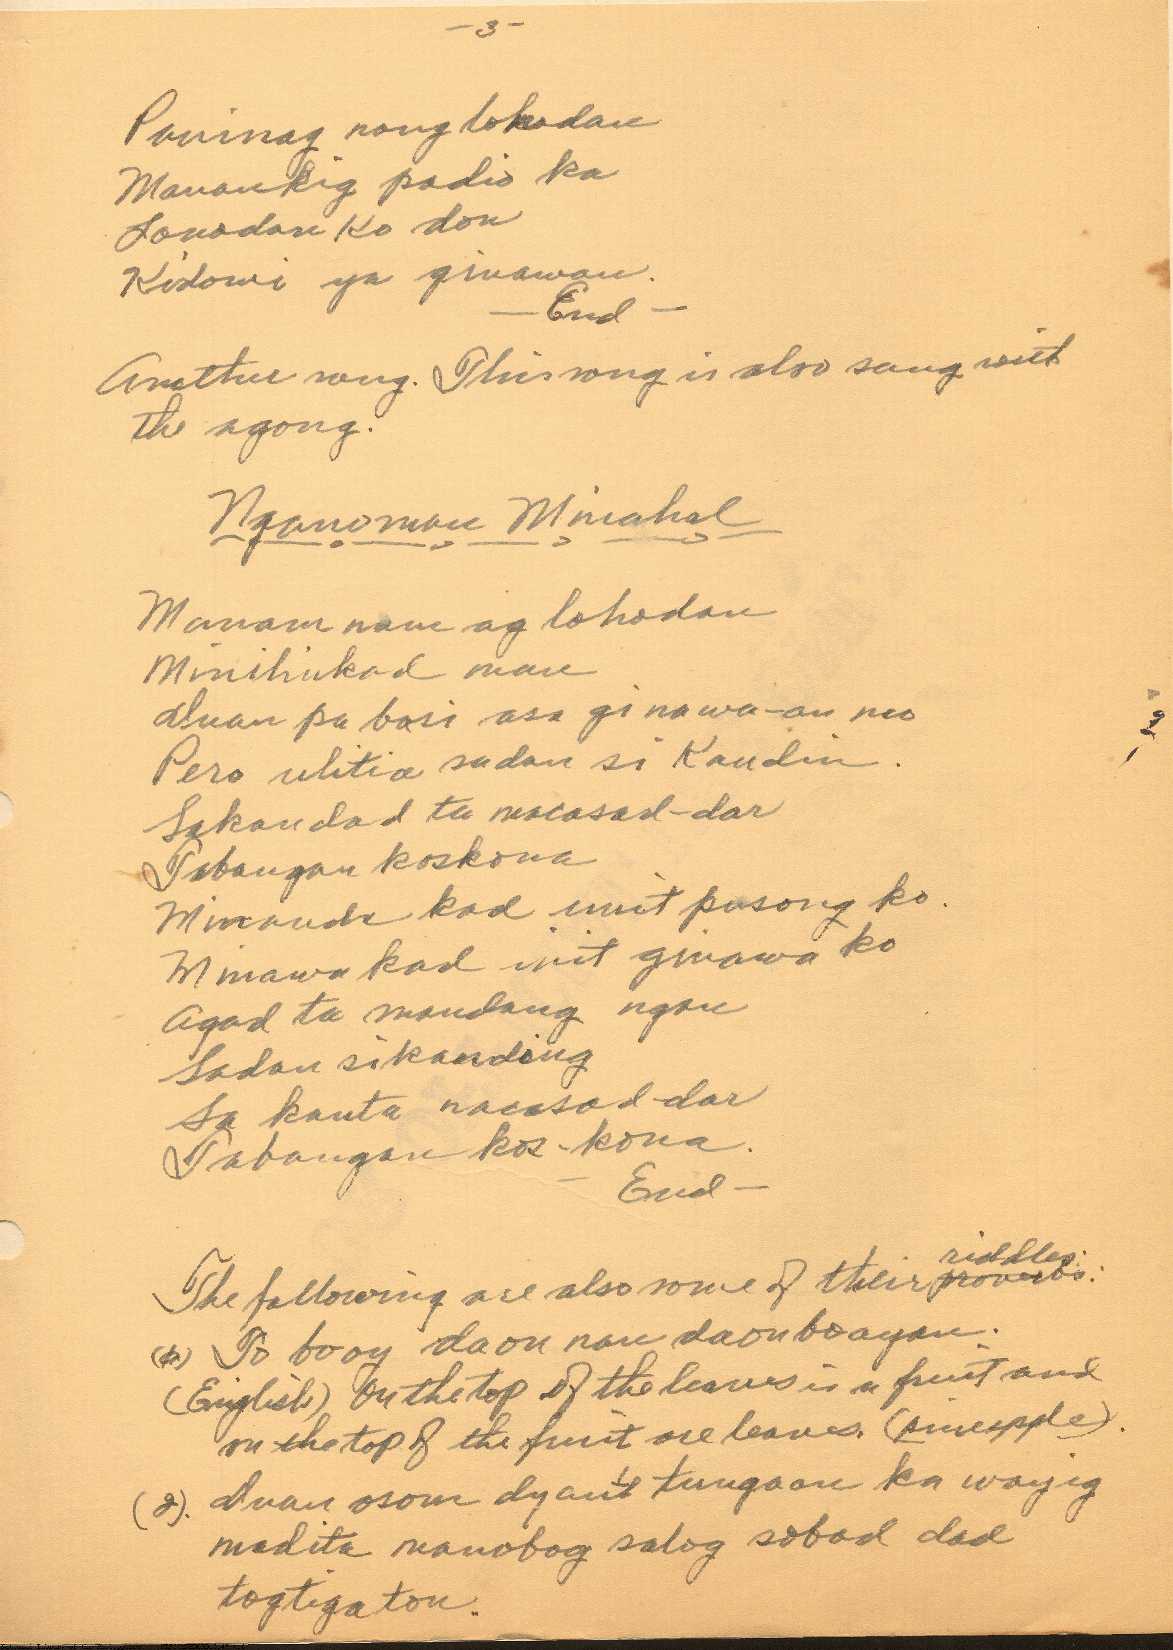 -3-
Paninag nong lohodan
Manankig padio ka
Lonodan ko don
Kidowi ya ginawan.
- End -
Another song. This song is also sung with
the agong.
Nganoman Minahal
Manam nan ag lohodan
Minihinkad man
duan pa basi asa ginawa-an mo
Pero ulitia sadan si Kandin.
Sakandad ta macasad-dar
Tabangan koskona
Minanda kad init pusong ko.
Minawa kad init ginawa ko
Agad ta mandang ngan
Sadan sikanding
Sa kanta nacasad-dar
Tabangan kos-kona.
- End -
The following are also some of their riddles:
To booy daon nan daon boayan.
(English) On the top of the leaves is a fruit and
on the top of the fruit are leaves. (pineapple).
(2). duan osom dyant tungaan ka wayig
madita manobog salog sobad dad
togtigaton.